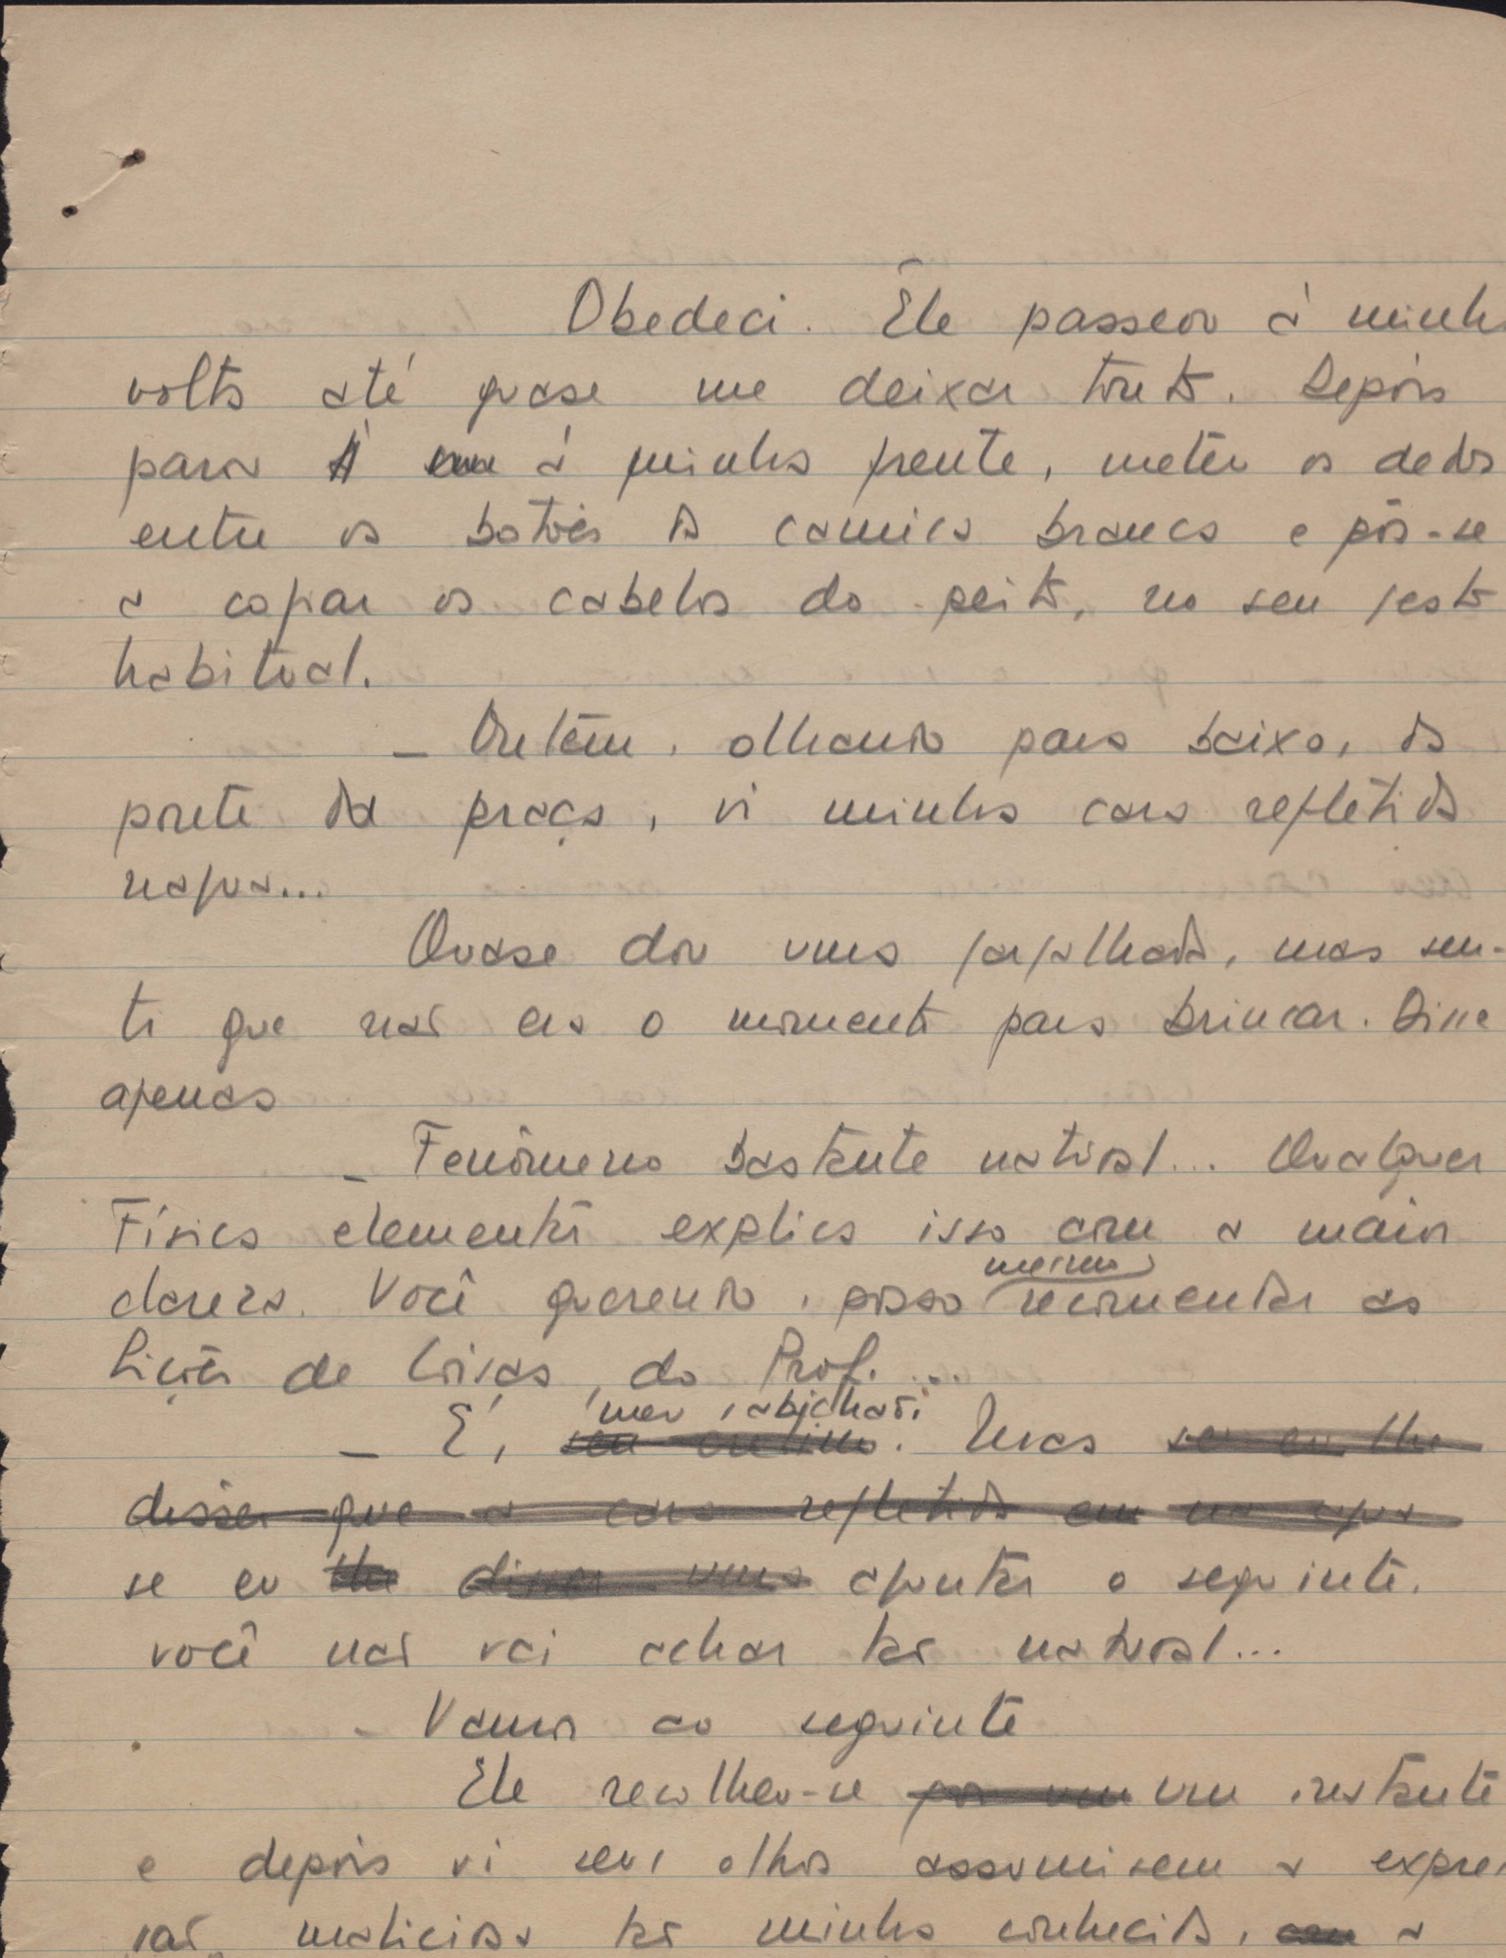 Obedeci. Êle passeou à minha
volta até quase me deixar tonto. Depois
parou à minha frente, meteu os dedos
entre os botões da camisa branca e pôs-se
a coçar os cabelos do peito, no seu gesto
habitual.
— Ontem, olhando para baixo, da
ponte da praça, vi minha cara refletida
nagua...
Quase dou uma gargalhada, mas sen-
ti que não era o momento para brincar. Disse
apenas
— Fenômeno bastante natural... Qualquer
Física elementar explica isso com a maior
clareza. Você querendo, posso mesmo recomendar as
Lições de Coisas, do Prof. ...
— É, seu cretino. meu sabichão. Mas se eu lhe
disser que a cara refletida em na agua
se eu lhe disser uma aponta o seguinte,
você não vai achar tão natural...
— Vamos ao seguinte
Ele recolheu-se por um um instante
e depois vi seus olhos assumirem a expres
são maliciosa tão minha conhecida, com a